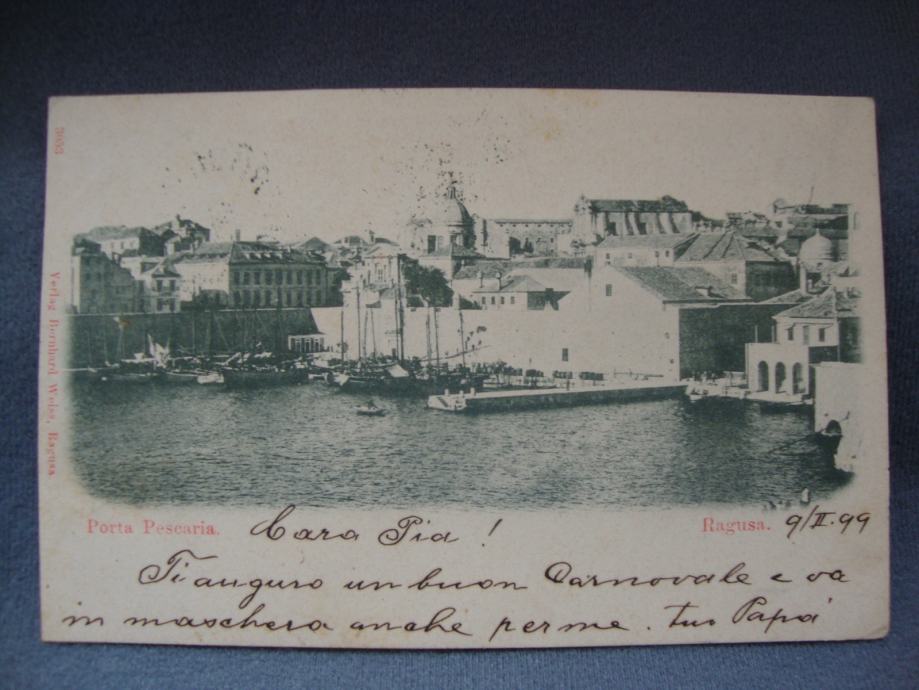 3083
Verlag Bernhard Weiss, Ragusa
Porta Pescaria.
Ragusa. 9/II.99
Cara Pia!
Ti auguro un buon Carnovale e va
in maschera anche per me. tuo Papá